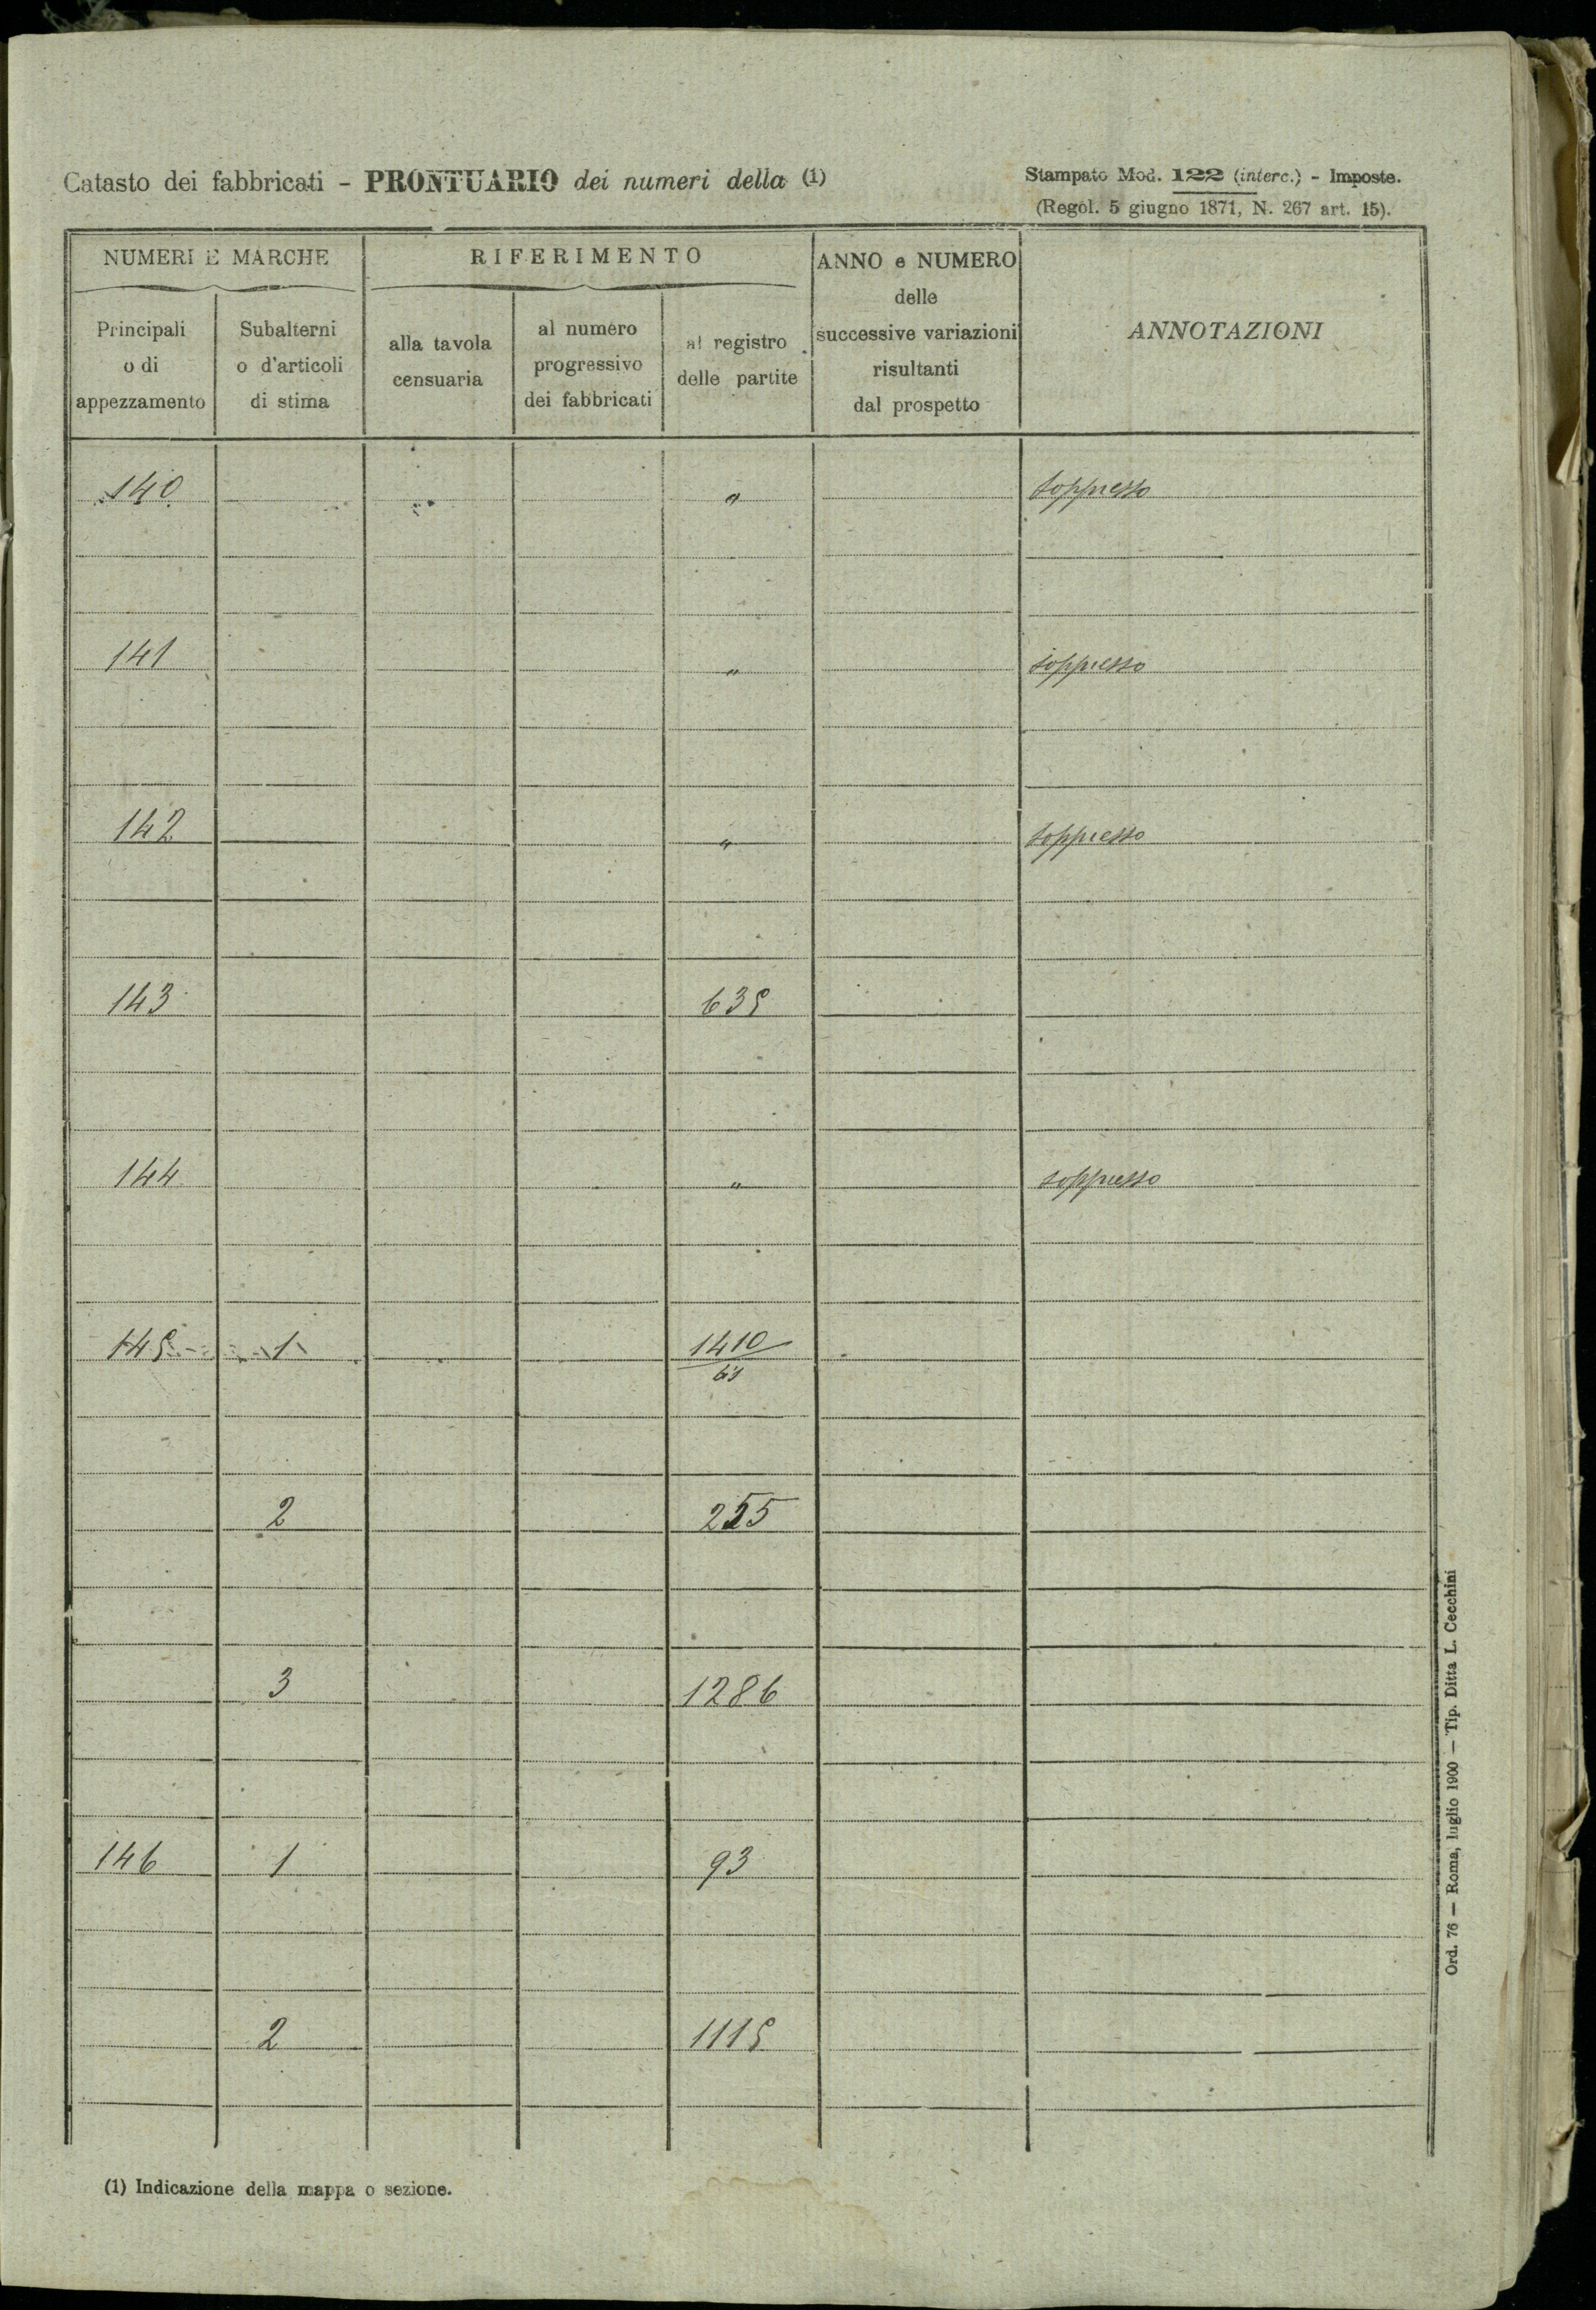 Catasto dei fabbricati - PRONTUARIO dei numeri della (1)
Stampato Mod. 122 (interc.) - Imposte.
(Regol. 5 giugno 1871, N. 267 art. 15).
NUMERI E MARCHE
RIFERIMENTO
ANNO e NUMERO
delle
successive variazioni
risultanti
dal prospetto
ANNOTAZIONI
Principali
o di
appezzamento
Subalterni
o d'articoli
di stima
alla tavola
censuaria
al numero
progressivo
dei fabbricati
al registro
delle partite
140 " soppresso
141 " soppresso
142 " soppresso
143 635
144 " soppresso
145 1 1410
bis
2 255
3 1286
146 1 93
2 1115
(1) Indicazione della mappa o sezione.
Ord. 76 — Roma, luglio 1900 — Tip. Ditta L. Cecchini